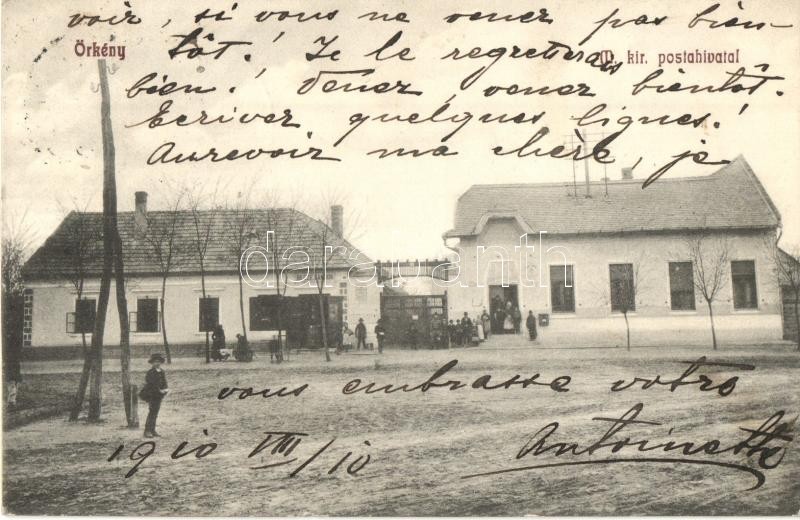 voir, si vous ne venez pas bien-
Örkény
tôt! Je le regretterais
M. kir. postahivatal
bien! Venez, venez bientôt.
Ecrivez quelques lignes!
Aurevoir ma chère, je
darabanth.com
vous embrasse votre
1910 VIII/10
Antoinette